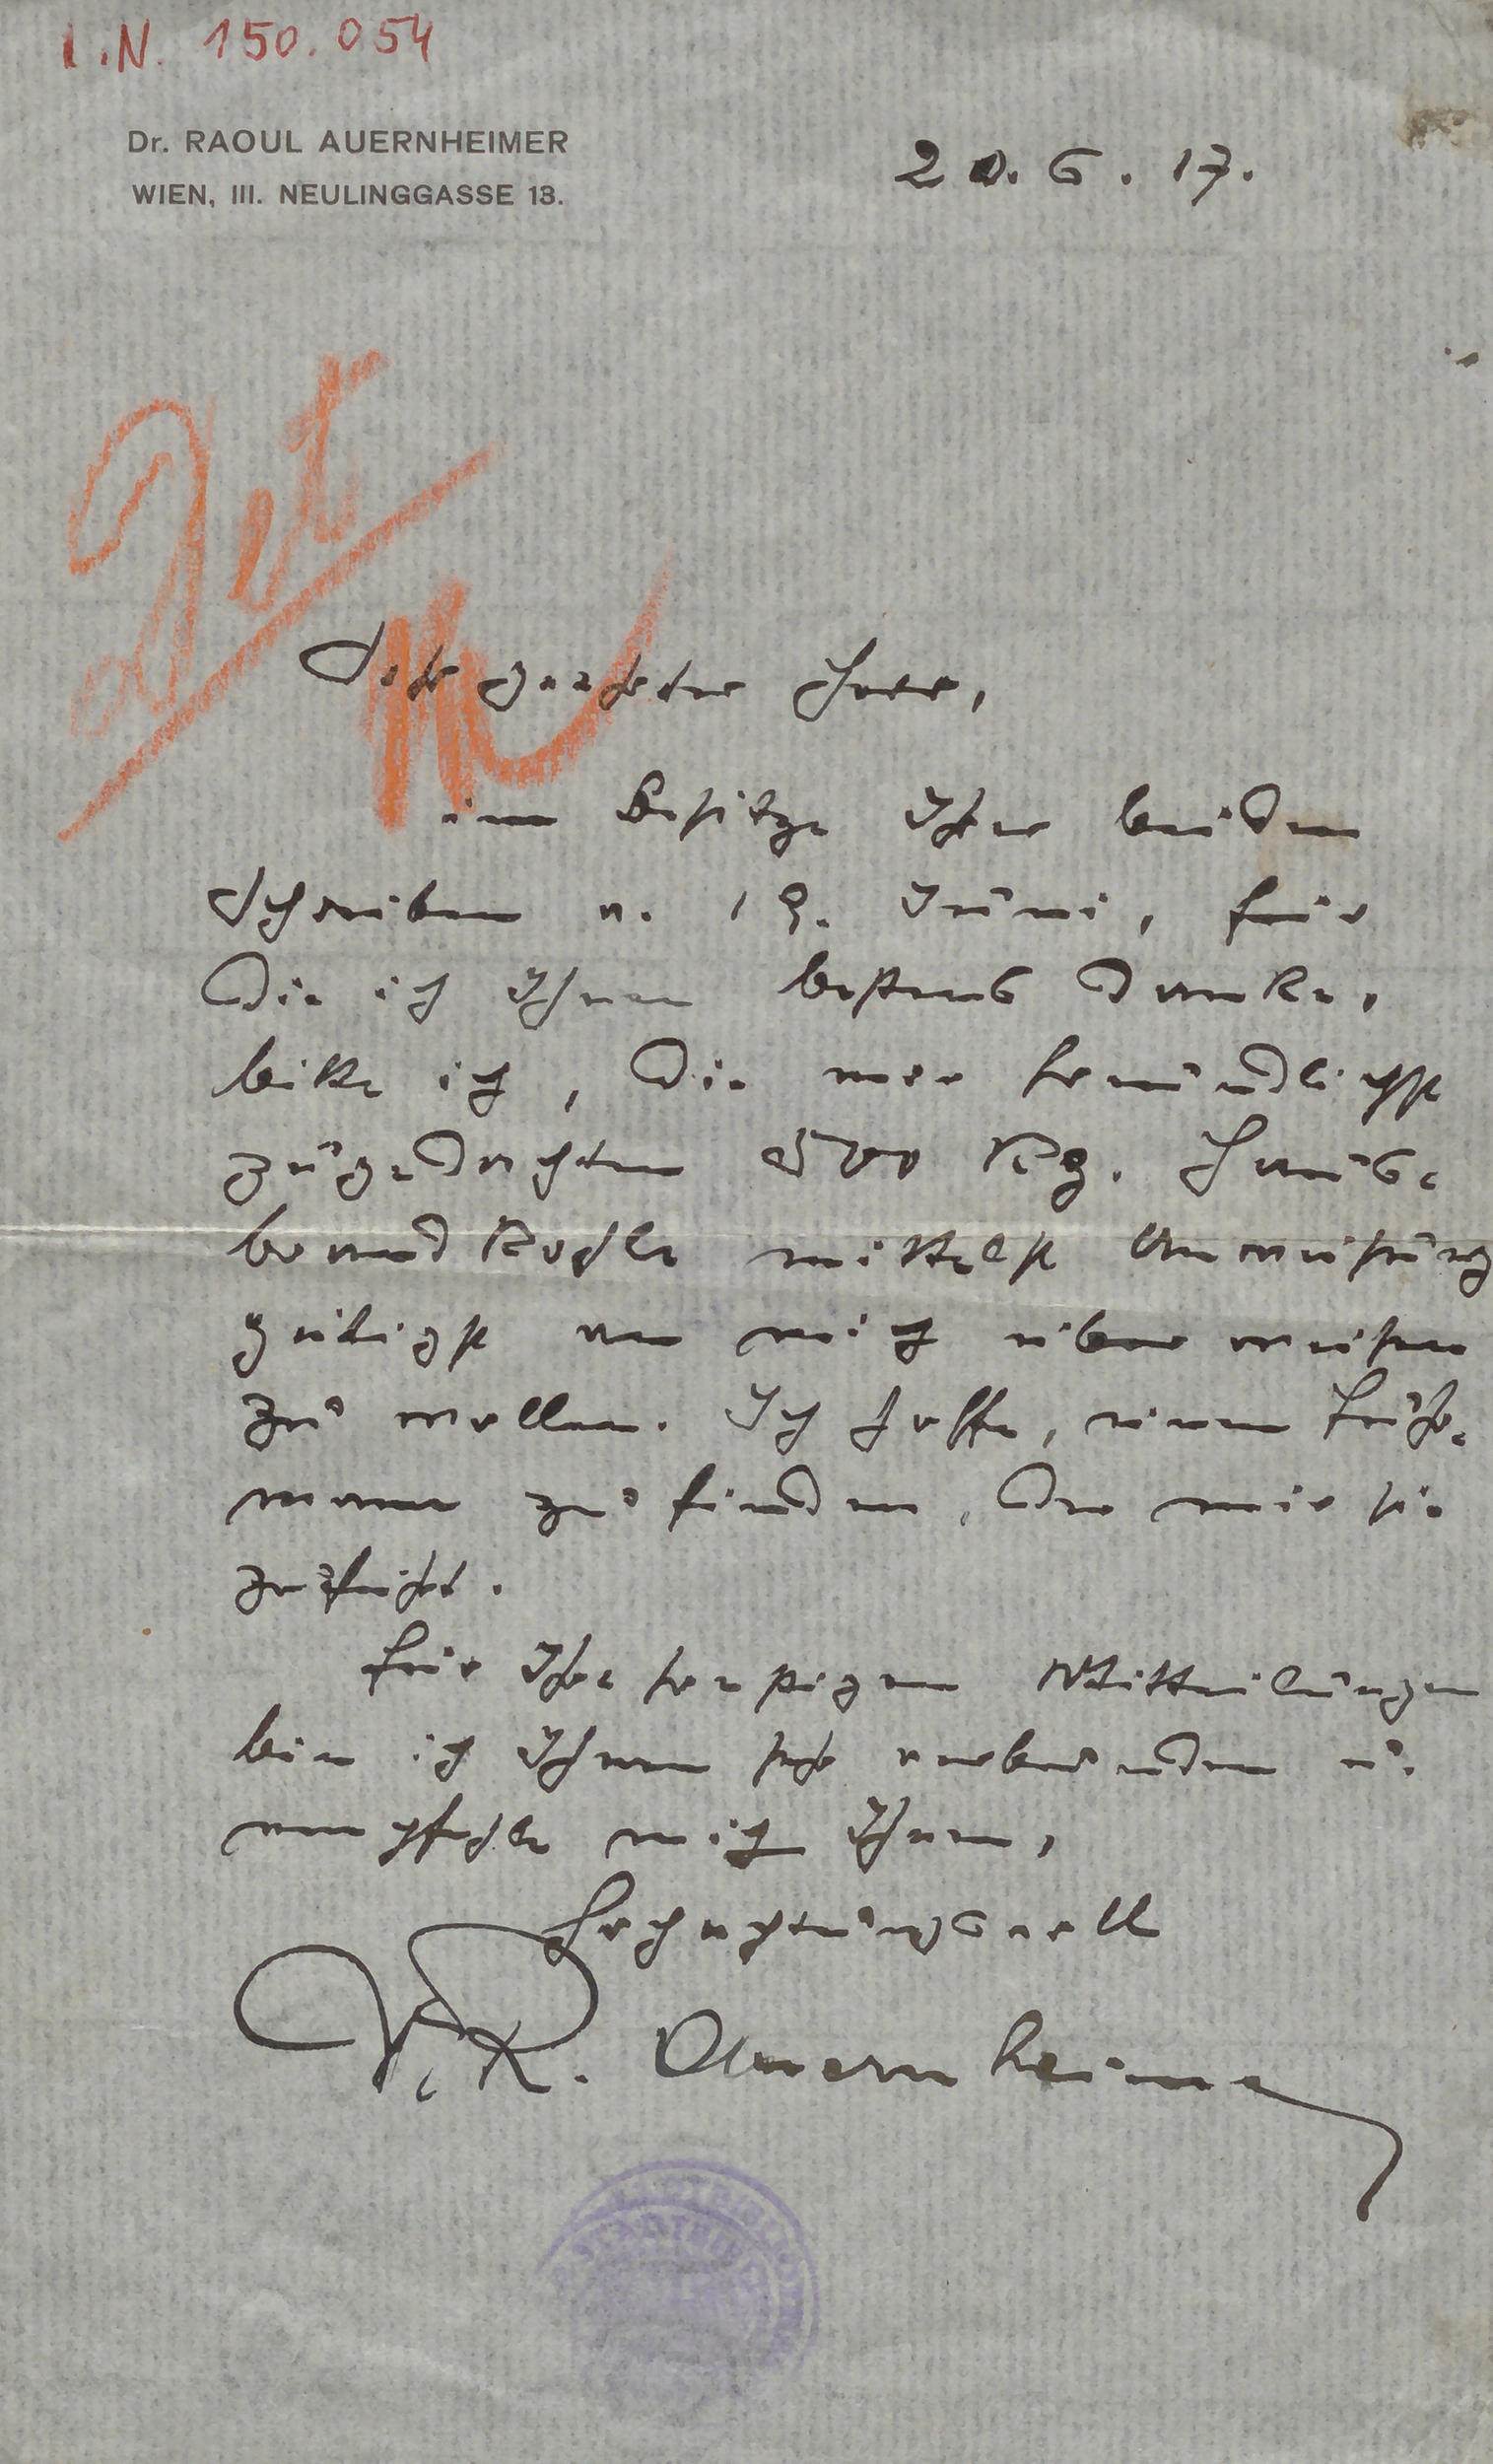 I.N. 150.054
Dr. RAOUL AUERNHEIMER
WIEN, III. NEULINGGASSE 13.
20. 6. 17.
Sehr geehrter Herr,
im Besitze Ihrer beiden
Schreiben v. 19. Juni, für
die ich Ihnen bestens danke,
bitte ich, die mir freundlichst
zugedachten 500 Kg. Haus-
brandkohle mittelst Anweisung
gütigst an mich überweisen
zu wollen. Ich hoffe, einen Fuhr-
mann zu finden, der mir sie
zuführt.
Für Ihre sonstigen Mitteilungen
bin ich Ihnen sehr verbunden u.
empfehle mich Ihnen,
hochachtungsvoll
R. Auernheimer